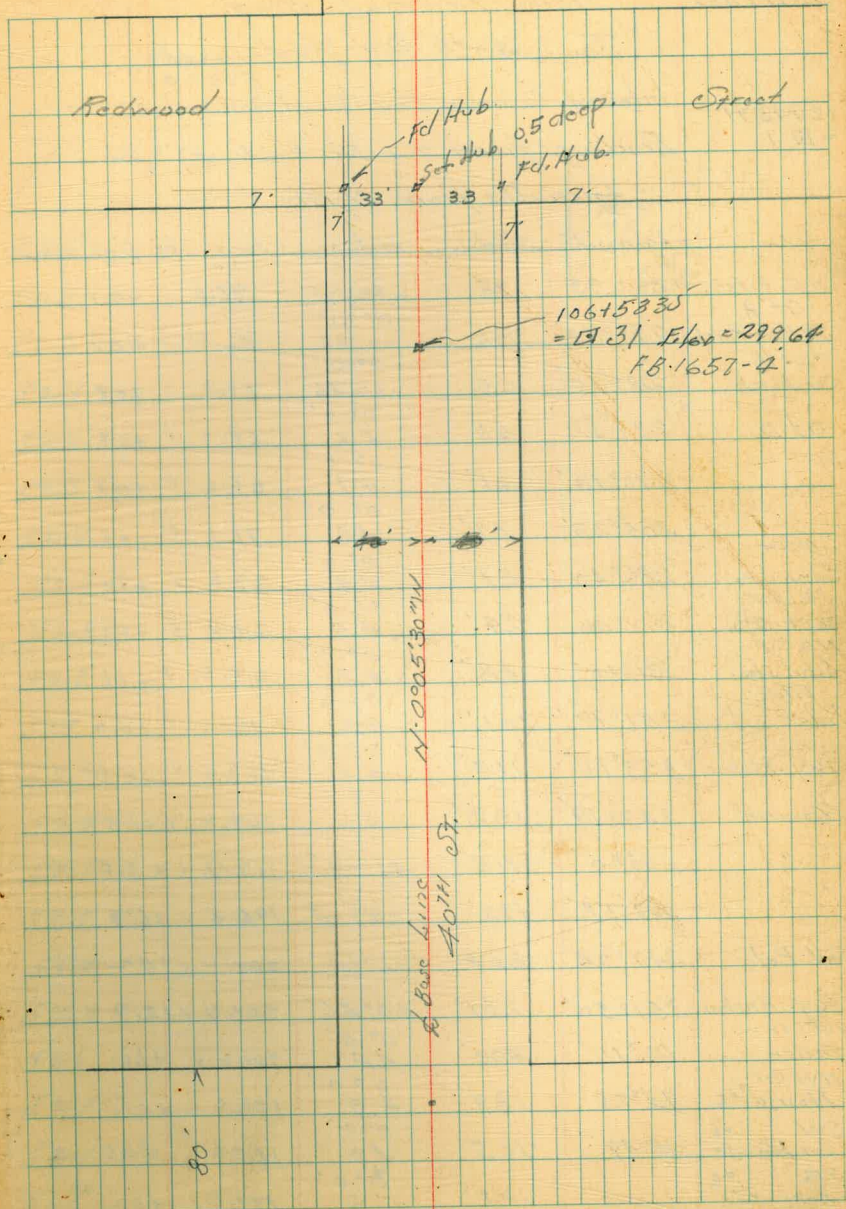 Redwood Street
Fd Hub
Set Hub 0.5 deep.
Fd. Hub.
7' 33' 33 7'
7' 7'
106+58 35
= ⊡ 31 Elev = 299.64
FB. 1657-4
N. 0°05'30" W
℄ Base Line
40TH St.
80'